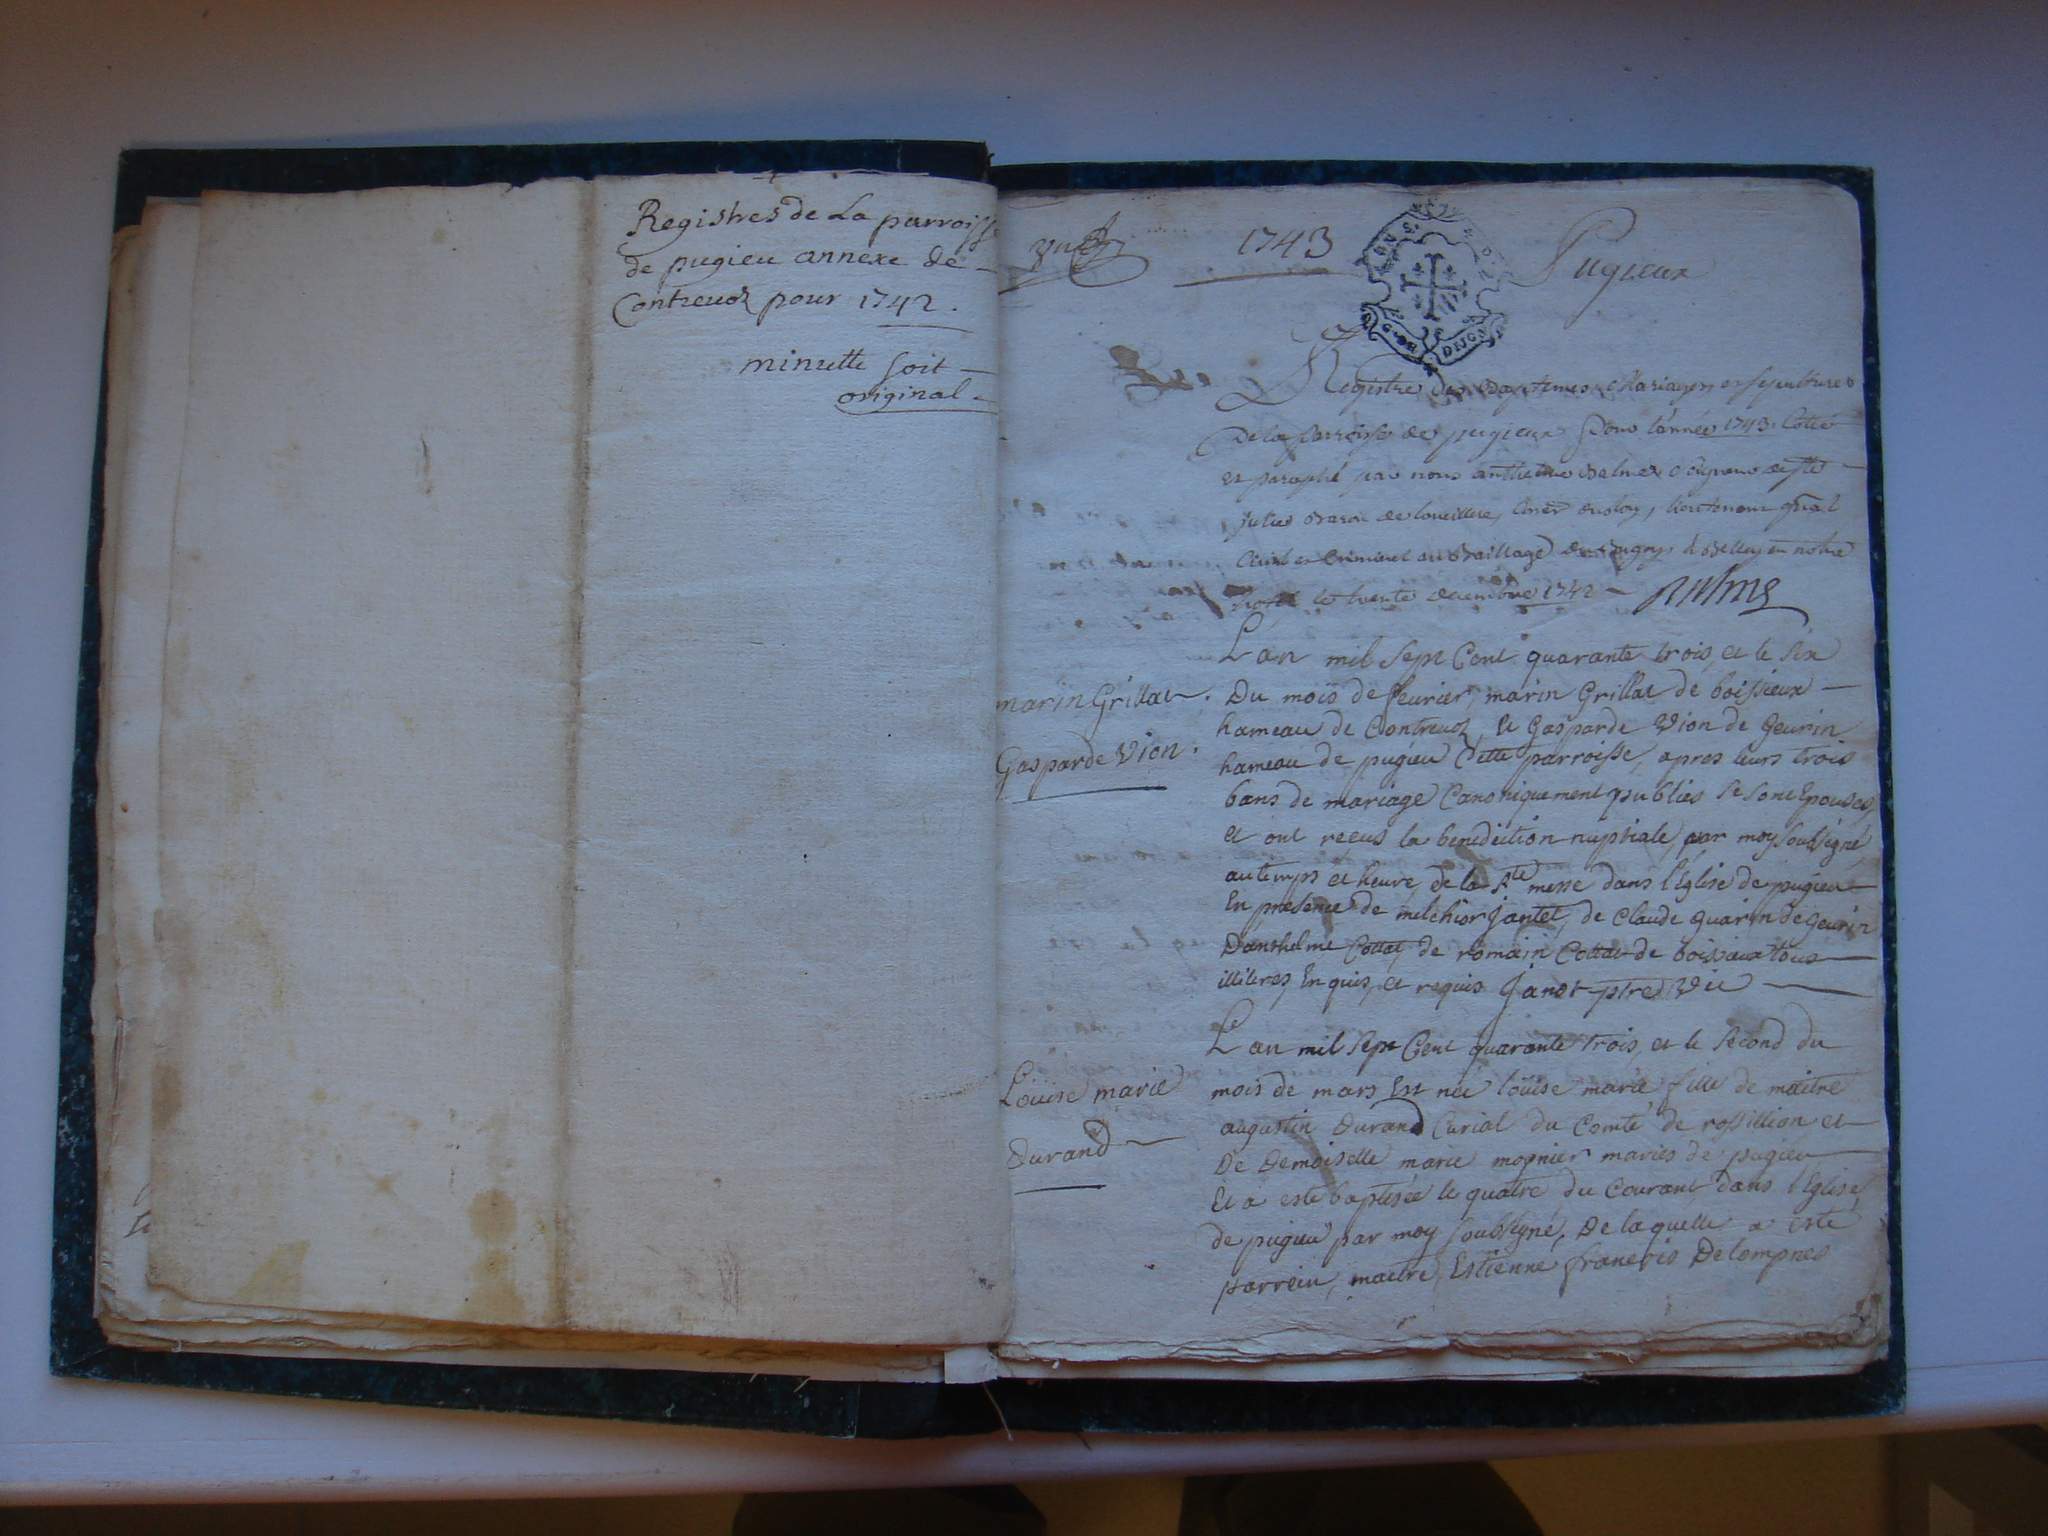 Registres de La parroisse
de pugieu annexe de
Contrevoz pour 1742.
minutte soit
original
1743
Pugieux
DIJON
Registre des Baptemes Mariages et sepultures
De la parroisse de pugieux pour l'année 1743. Cotté
et paraphé par nous anthelme Balme Seigneur de Ste
Julie Baron de
Civil et Criminel au Bailliage de Bugey à Belley en notre
hotel le trente decembre 1742 Balme
L'an mil sept Cent quarante trois, et le six
marin Grillat.
Du mois de feurier, marin Grillat de boissieux
hameau de Contrevoz, et Gasparde Vion de Geurin
Gasparde Vion.
hameau de pugieu Cette parroisse, apres leurs trois
bans de mariage Canoniquement publies se sont Epouses,
et ont receus la benediction nuptiale, par moy soussigné,
au temps et heure, de la Ste messe dans l'Eglise de pugieu
En presence de melchior Jantet, de Claude quarin de Geurin
Danthelme Cottat, de romain Cottat de boissieux tous
illiteres, Enquis, et requis Janot ptre Vic
L'an mil sept Cent quarante trois, et le second du
Loüise marie
mois de mars Est née loüise marie fille de maitre
augustin Durand Curial du Comté de rossillion et
Durand
De Demoiselle marie monier maries de pugieu
Et a esté baptisée le quatre du Courant dans l'Eglise
de pugieu par moy soussigné, De laquelle a esté
parrein, maitre, Estienne françois Delompnes